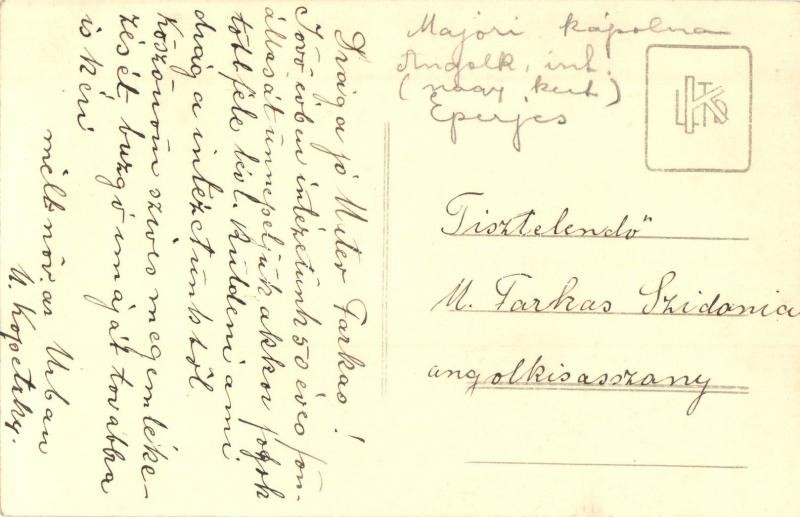 Majori kápolna
Angolk. int.
(nagy kert)
Eperjes
Drága jó Máter Farkas!
Jövő évben intézetünk 50 éves fön-
állását ünnepeljük akkor fogok
többféle lévl. küldeni a mi
drága intézetünkből
Köszönöm szíves megemléke-
zését buzgó imáját továbbá
is kéri
mélt nőv. az Urban
M. Kopetzky.
Tisztelendő
M. Farkas Szidonia
angolkisasszony